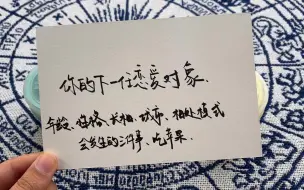 你的下一任恋爱对象.
年龄、性格、长相、城市、相处模式
会发生的